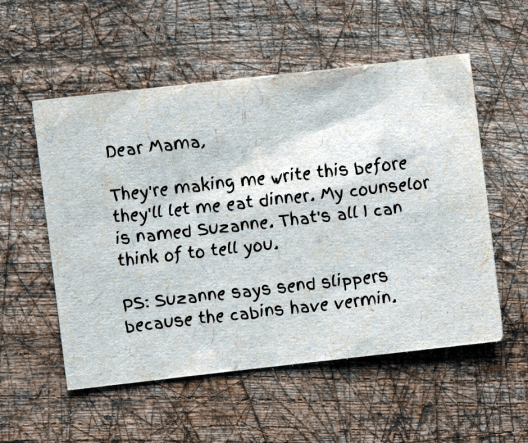 Dear Mama,
They're making me write this before
they'll let me eat dinner. My counselor
is named Suzanne. That's all I can
think of to tell you.
PS: Suzanne says send slippers
because the cabins have vermin.